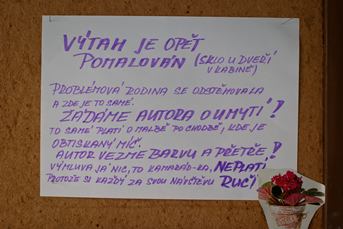 VÝTAH JE OPĚT
POMALOVÁN (SKLO U DVEŘÍ
V KABINĚ)
PROBLÉMOVÁ RODINA SE ODSTĚHOVALA
A ZDE JE TO SAMÉ.
ŽÁDÁME AUTORA O UMYTÍ!
TO SAMÉ PLATÍ O MALBĚ PO CHODBĚ, KDE JE
OBTISKANÝ MÍČ.
AUTOR VEZME BARVU A PŘETŘE!
VÝMLUVA JÁ NIC, TO KAMARÁD-KA, NEPLATÍ
PROTOŽE SI KAŽDÝ ZA SVOU NÁVŠTĚVU RUČÍ